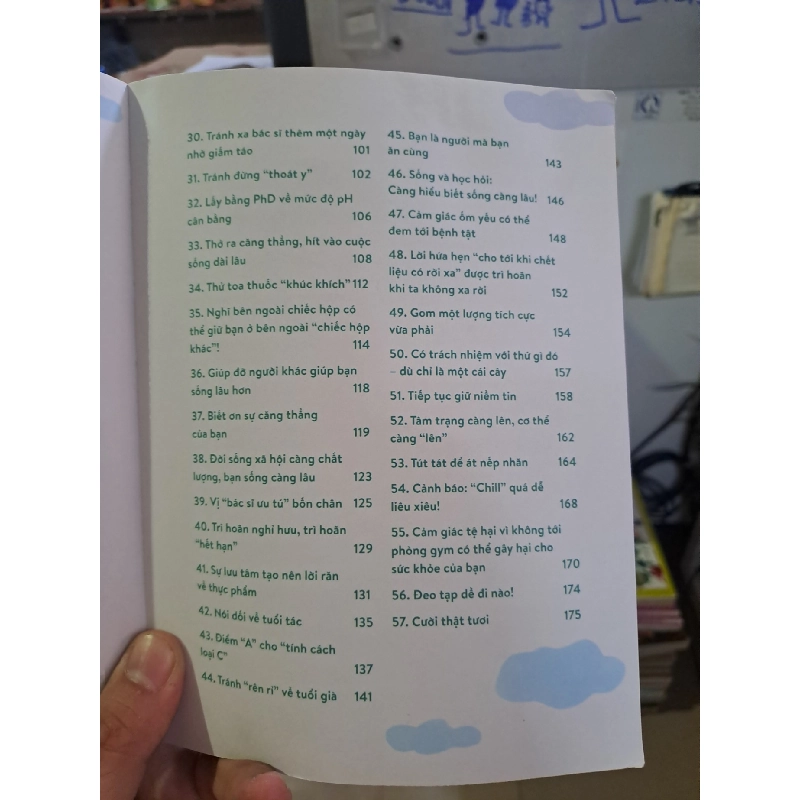 30. Tránh xa bác sĩ thêm một ngày
nhờ giấm táo 101
31. Tránh đừng “thoát y” 102
32. Lấy bằng PhD về mức độ pH
cân bằng 106
33. Thở ra căng thẳng, hít vào cuộc
sống dài lâu 108
34. Thử toa thuốc “khúc khích” 112
35. Nghĩ bên ngoài chiếc hộp có
thể giữ bạn ở bên ngoài “chiếc hộp
khác”! 114
36. Giúp đỡ người khác giúp bạn
sống lâu hơn 118
37. Biết ơn sự căng thẳng
của bạn 119
38. Đời sống xã hội càng chất
lượng, bạn sống càng lâu 123
39. Vị “bác sĩ ưu tú” bốn chân 125
40. Trì hoãn nghỉ hưu, trì hoãn
“hết hạn” 129
41. Sự lưu tâm tạo nên lời răn
về thực phẩm 131
42. Nói dối về tuổi tác 135
43. Điểm “A” cho “tính cách
loại C” 137
44. Tránh “rên rỉ” về tuổi già 141
45. Bạn là người mà bạn
ăn cùng 143
46. Sống và học hỏi:
Càng hiểu biết sống càng lâu! 146
47. Cảm giác ốm yếu có thể
đem tới bệnh tật 148
48. Lời hứa hẹn “cho tới khi chết
liệu có rời xa” được trì hoãn
khi ta không xa rời 152
49. Gom một lượng tích cực
vừa phải 154
50. Có trách nhiệm với thứ gì đó
– dù chỉ là một cái cây 157
51. Tiếp tục giữ niềm tin 158
52. Tâm trạng càng lên, cơ thể
càng “lên” 162
53. Tút tát để át nếp nhăn 164
54. Cảnh báo: “Chill” quá dễ
liêu xiêu! 168
55. Cảm giác tệ hại vì không tới
phòng gym có thể gây hại cho
sức khỏe của bạn 170
56. Đeo tạp dề đi nào! 174
57. Cười thật tươi 175